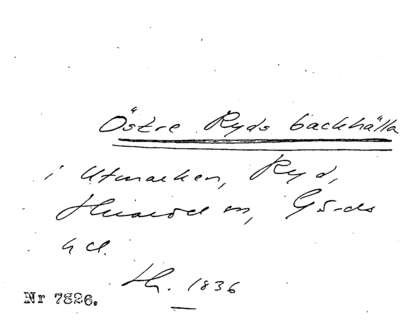 Östre Ryds backhälla
i Utmarken, Ryd,
Hviaröd sn, Gärds
hd.
th. 1836
Nr 7826.